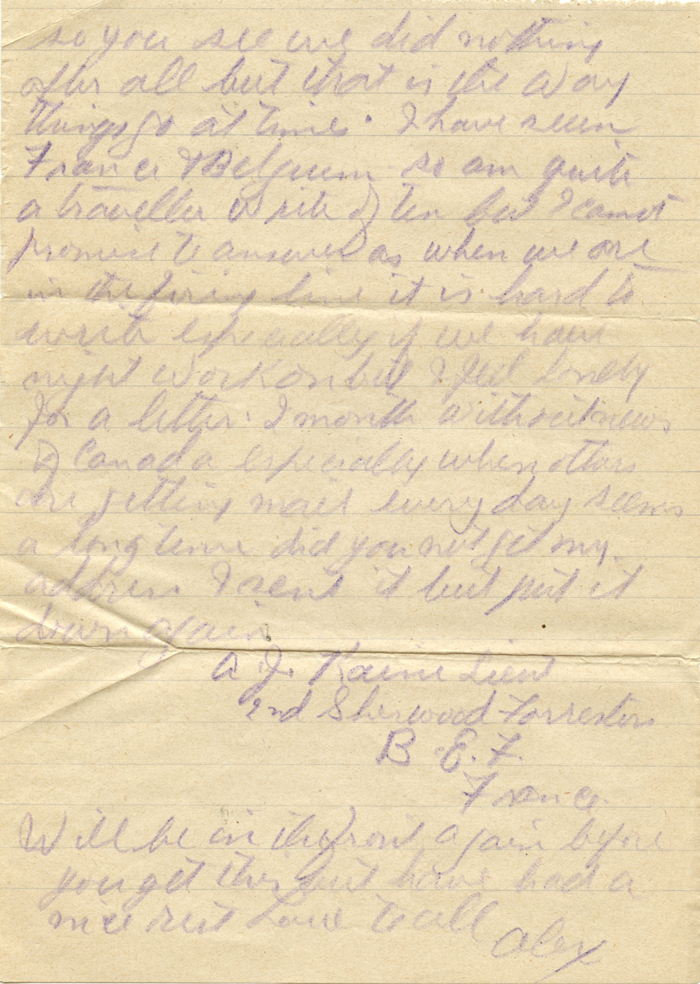 so you see we did nothing
after all but that is the way
things go at times. I have seen
France & Belgium so am quite
a traveller write often but I cannot
promise to answer as when we are
in the firing line it is hard to
write especially if we have
night work on but I feel lonely
for a letter. 1 month without news
of Canada especially when others
are getting mail every day seems
a long time did you not get my
address I sent it but put it
down again
A. J. Kaine Lieut
2nd Sherwood Forresters
B.E.F.
France.
Will be in the front again before
you get this but have had a
nice rest Love to all
Alex